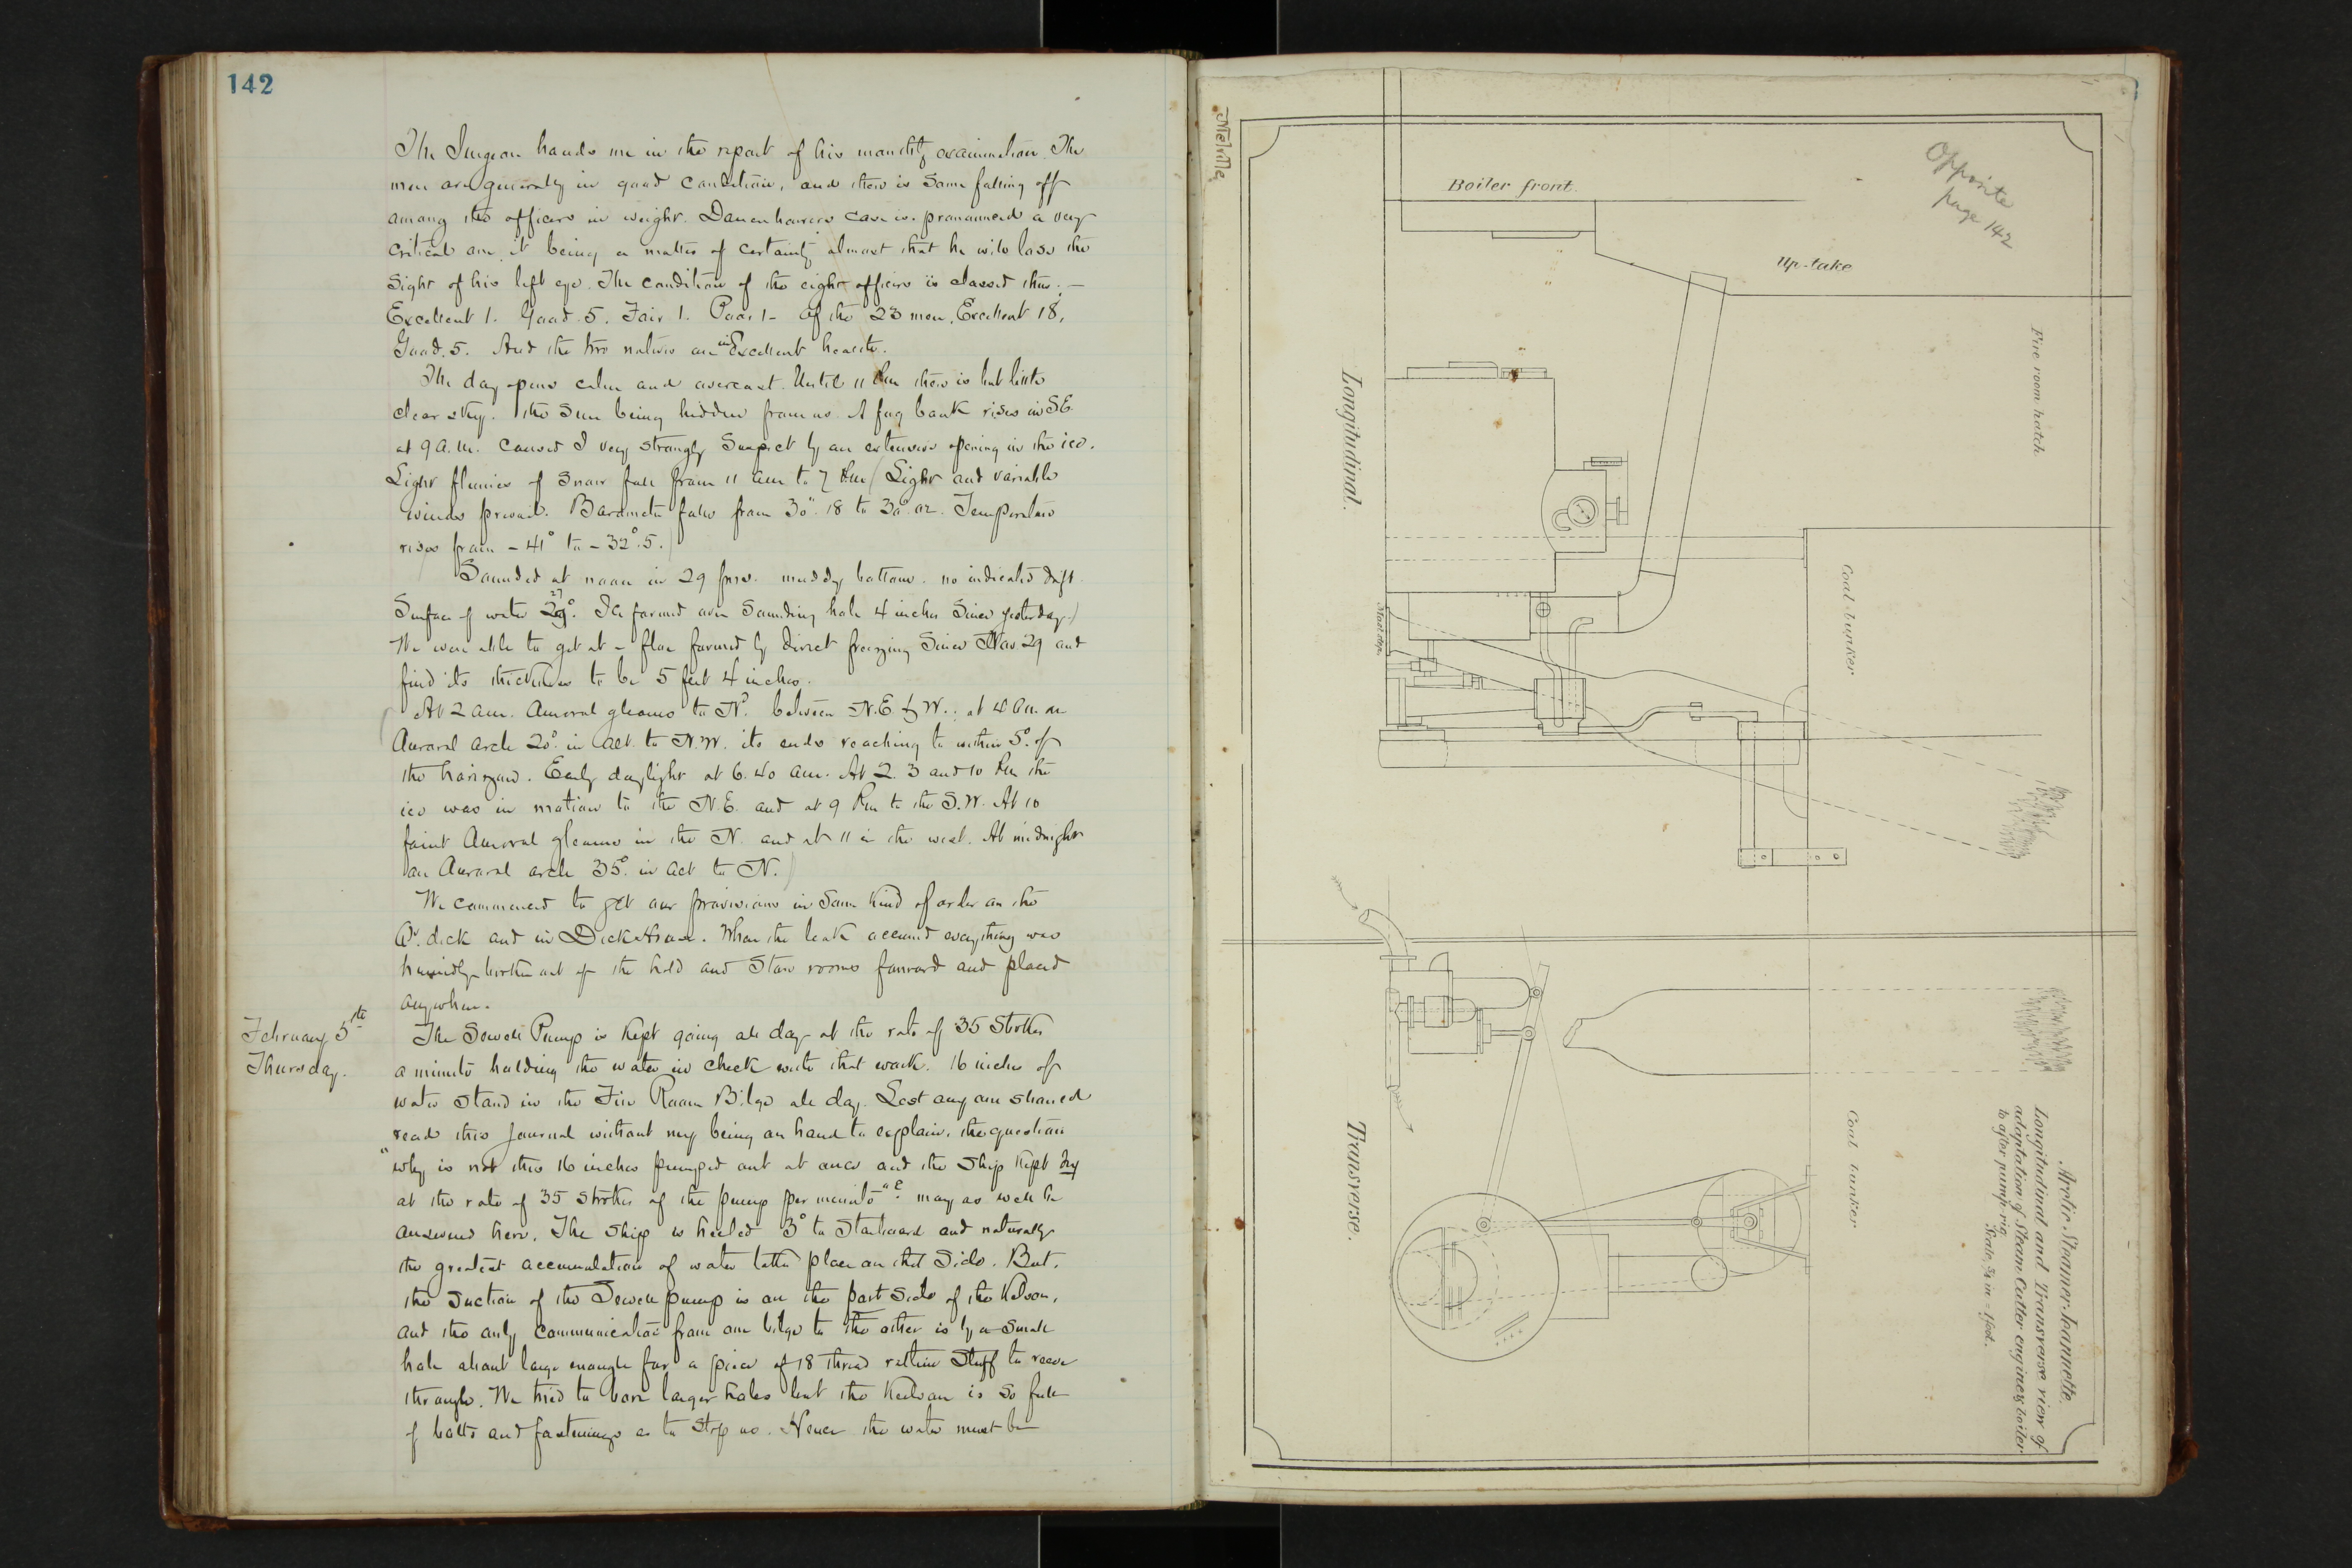 142
The Surgeon hands me in the report of his monthly examination. The
men are generally in good condition, and there is some falling off
among the officers in weight. Danenhowers case is pronounced a very
critical one, it being a matter of certainty almost that he will lose the
sight of his left eye. The condition of the eight officers is classed thus:—
Excellent 1. Good. 5. Fair 1. Poor 1- Of the 23 men, Excellent 18,
Good. 5. And the two natives are in Excellent health.
The day opens calm and overcast. Until 11 P.m there is but little
clear sky. the Sun being hidden from us. A fog bank rises in S.E.
at 9 a.m. caused I very strongly suspect by an extensive opening in the ice.
Light flurries of snow fall from 11 am to 7 Pm (Light and variable
winds prevail. Barometer falls from 30".18 to 30".02. Temperature
rises from - 41° to - 32°.5.)
Sounded at noon in 29 fms. muddy bottom. no indicated drift.
Surface of water 27 29°. Ice formed over Sounding hole 4 inches since yesterday)
We were able to get at a floe formed by direct freezing since Nov. 29 and
find its thickness to be 5 feet 4 inches.
At 2 am. Auroral gleams to Nd. between N.E. & W.; at 4 am. an
Auroral arch 20° in alt. to N.W. its ends reaching to within 5° of
the horizon. Early daylight at 6.40 am. At 2. 3 and 10 Pm the
ice was in motion to the N.E. and at 9 Pm to the S.W. At 10
faint Auroral gleams in the N. and at 11 in the west. At midnight
an Auroral arch 35° in alt to N.)
We commenced to get our provisions in some kind of order on the
Qr. deck and in Deck House. When the leak occurred everything was
hurriedly broken out of the hold and Store rooms forward and placed
anywhere.
February 5th
Thursday.
The Sewell Pump is kept going all day at the rate of 35 Strokes
a minute holding the water in check with that work. 16 inches of
water stand in the Fire Room Bilge all day. Lest any one should
read this Journal without my being on hand to explain, the question
"why is not this 16 inches pumped out at once and the ship kept dry
at the rate of 35 strokes of the pump per minute"? may as well be
answered here. The ship is heeled 3° to Starboard and naturally
the greatest accumulation of water takes place on that side. But,
the suction of the Sewell pump is on the port side of the Kelson,
and the only communication from one bilge to the other is by a small
hole about large enough for a piece of 18 thread ratline stuff to reeve
through. We tried to bore larger holes but the Keelson is so full
of bolts and fastenings as to stop us. Hence the water must be
Melville
Opposite
page 142
Boiler front.
Up-take
Fire room hatch
Longitudinal.
Coal bunker
Coal bunker
Transverse.
Arctic Steamer Jeannette.
Longitudinal and Transverse view of
adaptation of Steam Cutter engines & boiler
to after pump-rig.
Scale, 3/4 in = 1 foot.